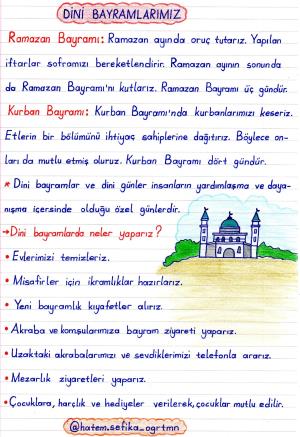 DİNİ BAYRAMLARIMIZ
Ramazan Bayramı: Ramazan ayında oruç tutarız. Yapılan
iftarlar soframızı bereketlendirir. Ramazan ayının sonunda
da Ramazan Bayramı'nı kutlarız. Ramazan Bayramı üç gündür.
Kurban Bayramı: Kurban Bayramı'nda kurbanlarımızı keseriz.
Etlerin bir bölümünü ihtiyaç sahiplerine dağıtırız. Böylece on-
ları da mutlu etmiş oluruz. Kurban Bayramı dört gündür.
* Dini bayramlar ve dini günler insanların yardımlaşma ve daya-
nışma içersinde olduğu özel günlerdir.
→Dini bayramlarda neler yaparız?
• Evlerimizi temizleriz.
• Misafirler için ikramlıklar hazırlarız.
• Yeni bayramlık kıyafetler alırız.
• Akraba ve komşularımıza bayram ziyareti yaparız.
• Uzaktaki akrabalarımızı ve sevdiklerimizi telefonla ararız.
• Mezarlık ziyaretleri yaparız.
• Çocuklara, harçlık ve hediyeler verilerek, çocuklar mutlu edilir.
@hatem.sefika_ogrtmn